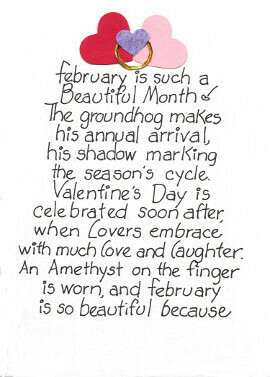 february is such a
Beautiful Month
The groundhog makes
his annual arrival,
his shadow marking
the season's cycle.
Valentine's Day is
celebrated soon after,
when Lovers embrace
with much Love and Laughter.
An Amethyst on the finger
is worn, and february
is so beautiful because